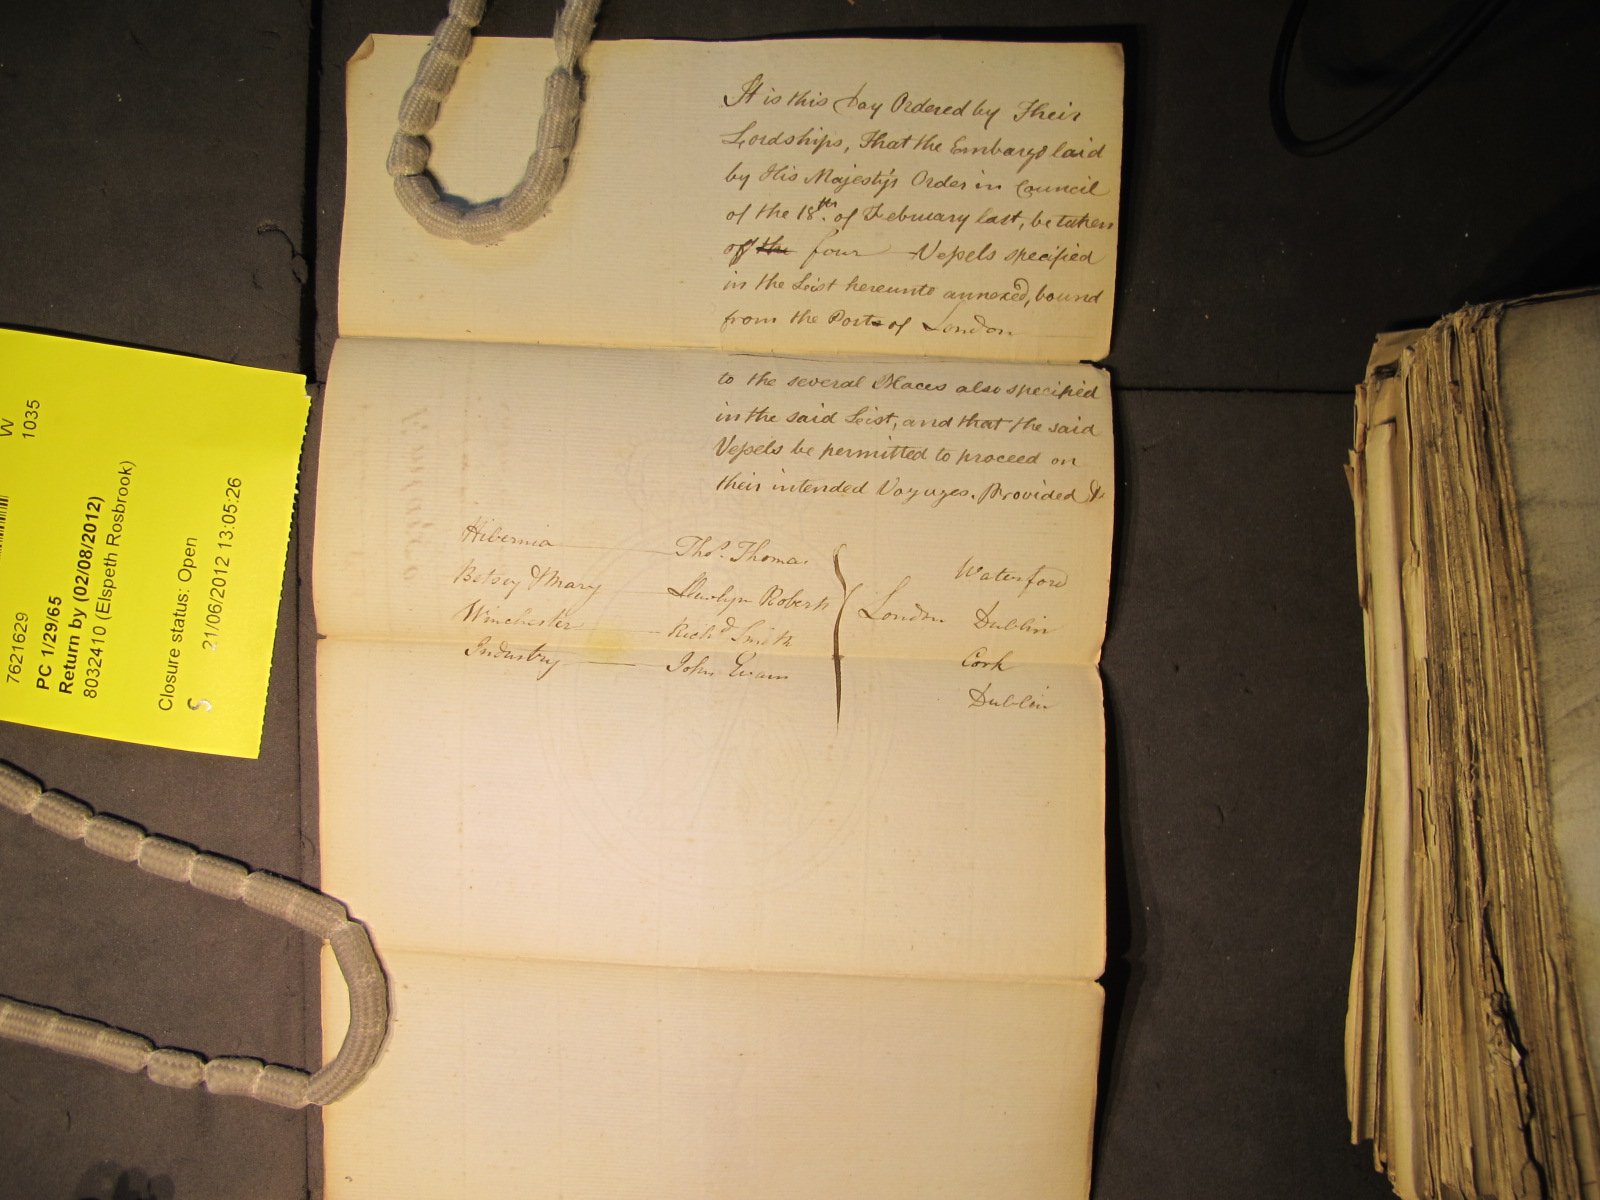 It is this Day Ordered by Their
Lordships, That the Embargo laid
by His Majesty's Order in Council
of the 18th. of February last, be taken
off the four Vessels specified
in the List hereunto annexed, bound
from the Port of London
to the several Places also specified
in the said List, and that the said
Vessels be permitted to proceed on
their intended Voyages. Provided &
Hibernia Thos. Thomas Waterford
Betsey & Mary Llewlyn Roberts London Dublin
Winchester Richd Smith Cork
Industry John Evans Dublin
W
1035
7621629
PC 1/29/65
Return by (02/08/2012)
8032410 (Elspeth Rosbrook)
Closure status: Open
S 21/06/2012 13:05:26